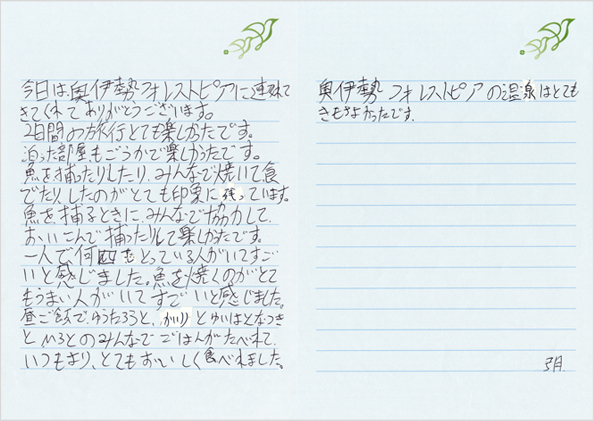 今日は奥伊勢フォレストピアに連れて
きてくれてありがとうございます。
2日間の旅行とても楽しかったです。
泊った部屋もごうかで楽しかったです。
魚を捕ったりしたり、みんなで焼いて食
でたり、したのがとても印象に残っています。
魚を捕るときに、みんなで協力して、
おいこんで捕ったりして楽しかったです。
一人で何匹もとっている人がいてすご
いと感じました。魚を焼くのがとて
もうまい人がいてすごいと感じました。
昼ご飯で、ゆうたろうと、かいりとゆいはとなつき
と、いろとのみんなでごはんがたべれて、
いつもより、とてもおいしく食べれました。
奥伊勢フォレストピアの温泉はとても
きもちよかったです。